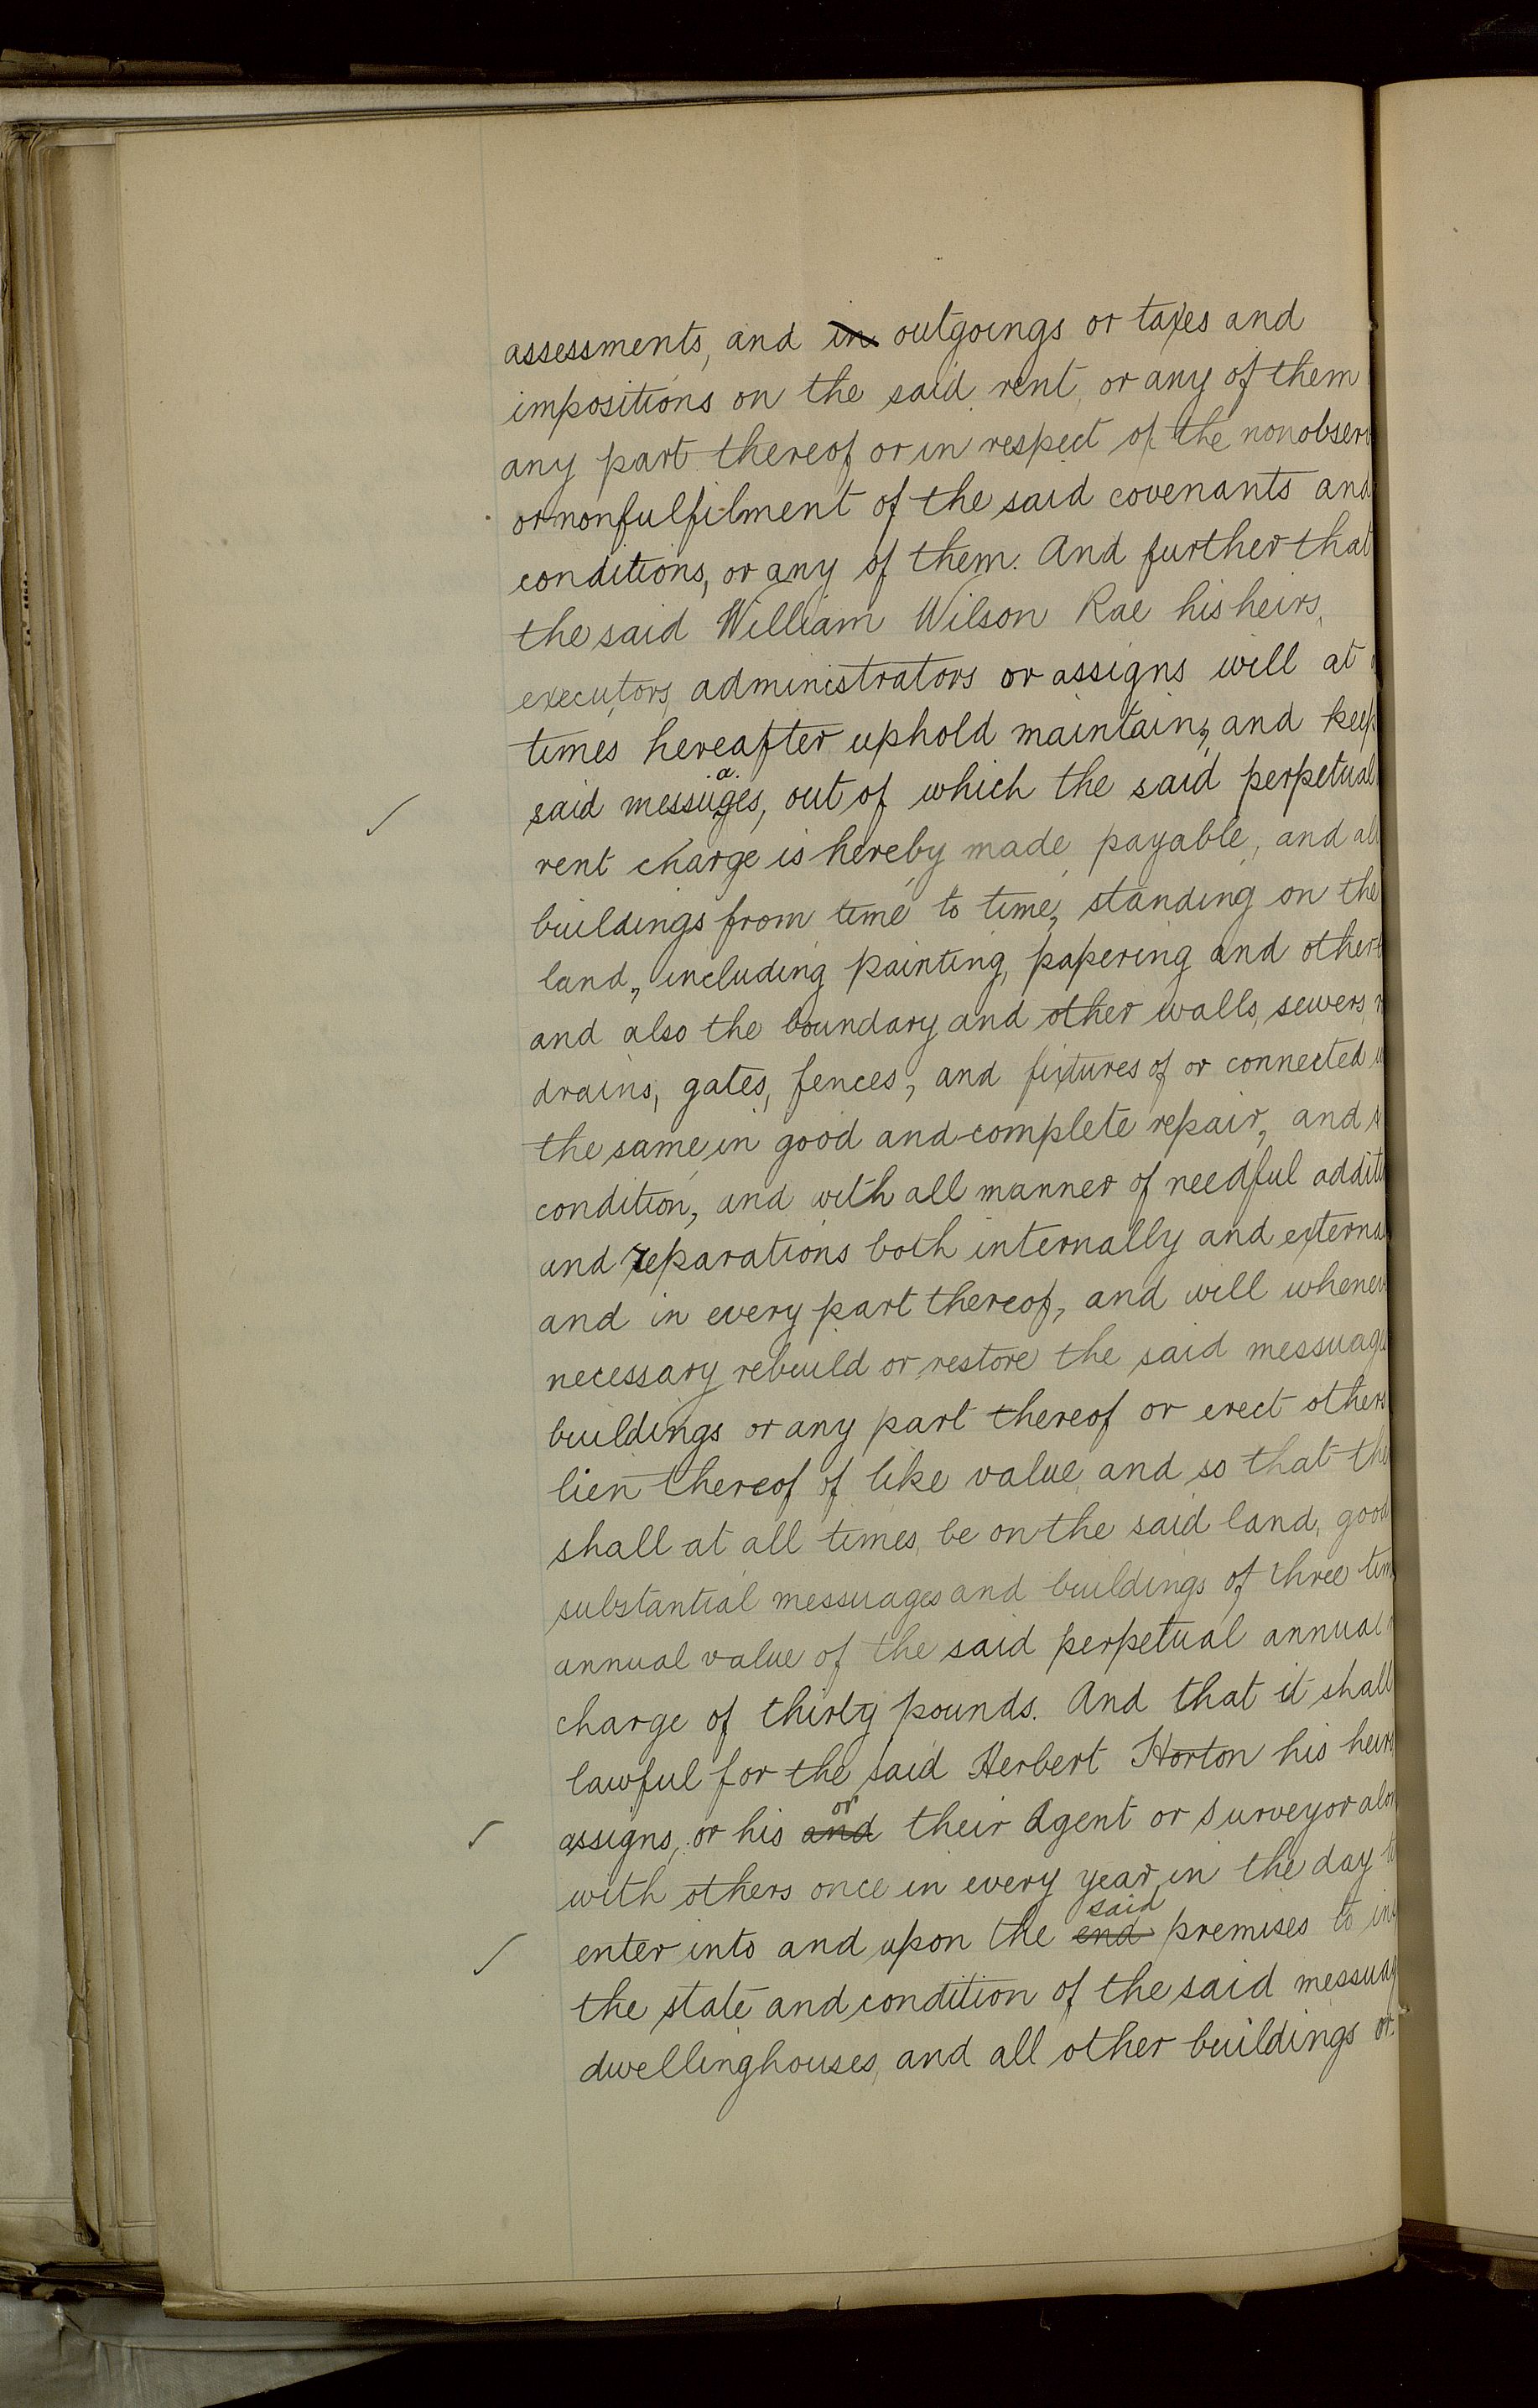 assessments, and in outgoings or taxes and
impositions on the said rent, or any of them
any part thereof or in respect of the nonobserv
or nonfulfilment of the said covenants and
conditions, or any of them. And further that
the said William Wilson Rae his heirs,
executors, administrators or assigns will at
times hereafter uphold maintain, and keep
said messuages, out of which the said perpetual
rent charge is hereby made payable, and all
buildings from time to time, standing on the
land, including painting, papering and other
and also the boundary and other walls, sewers,
drains, gates, fences, and fixtures of or connected
the same in good and complete repair, and
condition, and with all manner of needful addit
and reparations both internally and externa
and in every part thereof, and will whenev
necessary rebuild or restore the said messuage
buildings or any part thereof or erect others
lien thereof of like value, and so that the
shall at all times, be on the said land, good
substantial messuages and buildings of three tim
annual value of the said perpetual annual
charge of thirty pounds. And that it shall
lawful for the said Herbert Horton his heirs
assigns, or his and or their Agent or Surveyor alon
with others once in every year, in the day
enter into and upon the end said premises to in
the state and condition of the said messuag
dwellinghouses, and all other buildings or